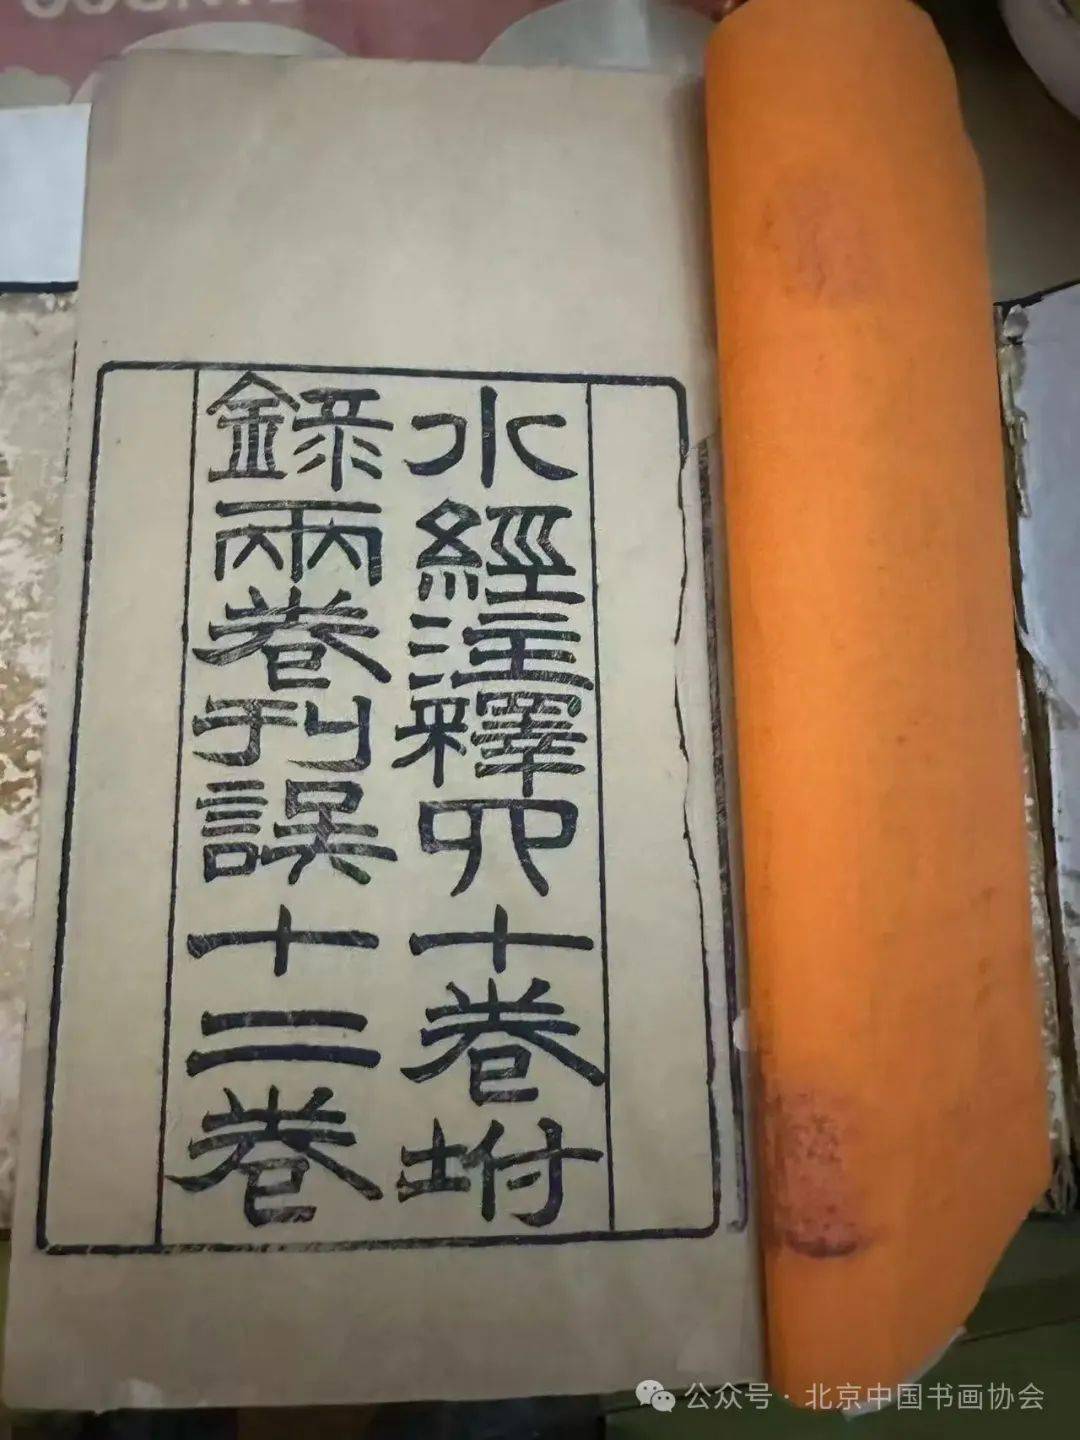 水經注釋四十卷坿
錄兩卷刊誤十二卷
公众号·北京中国书画协会